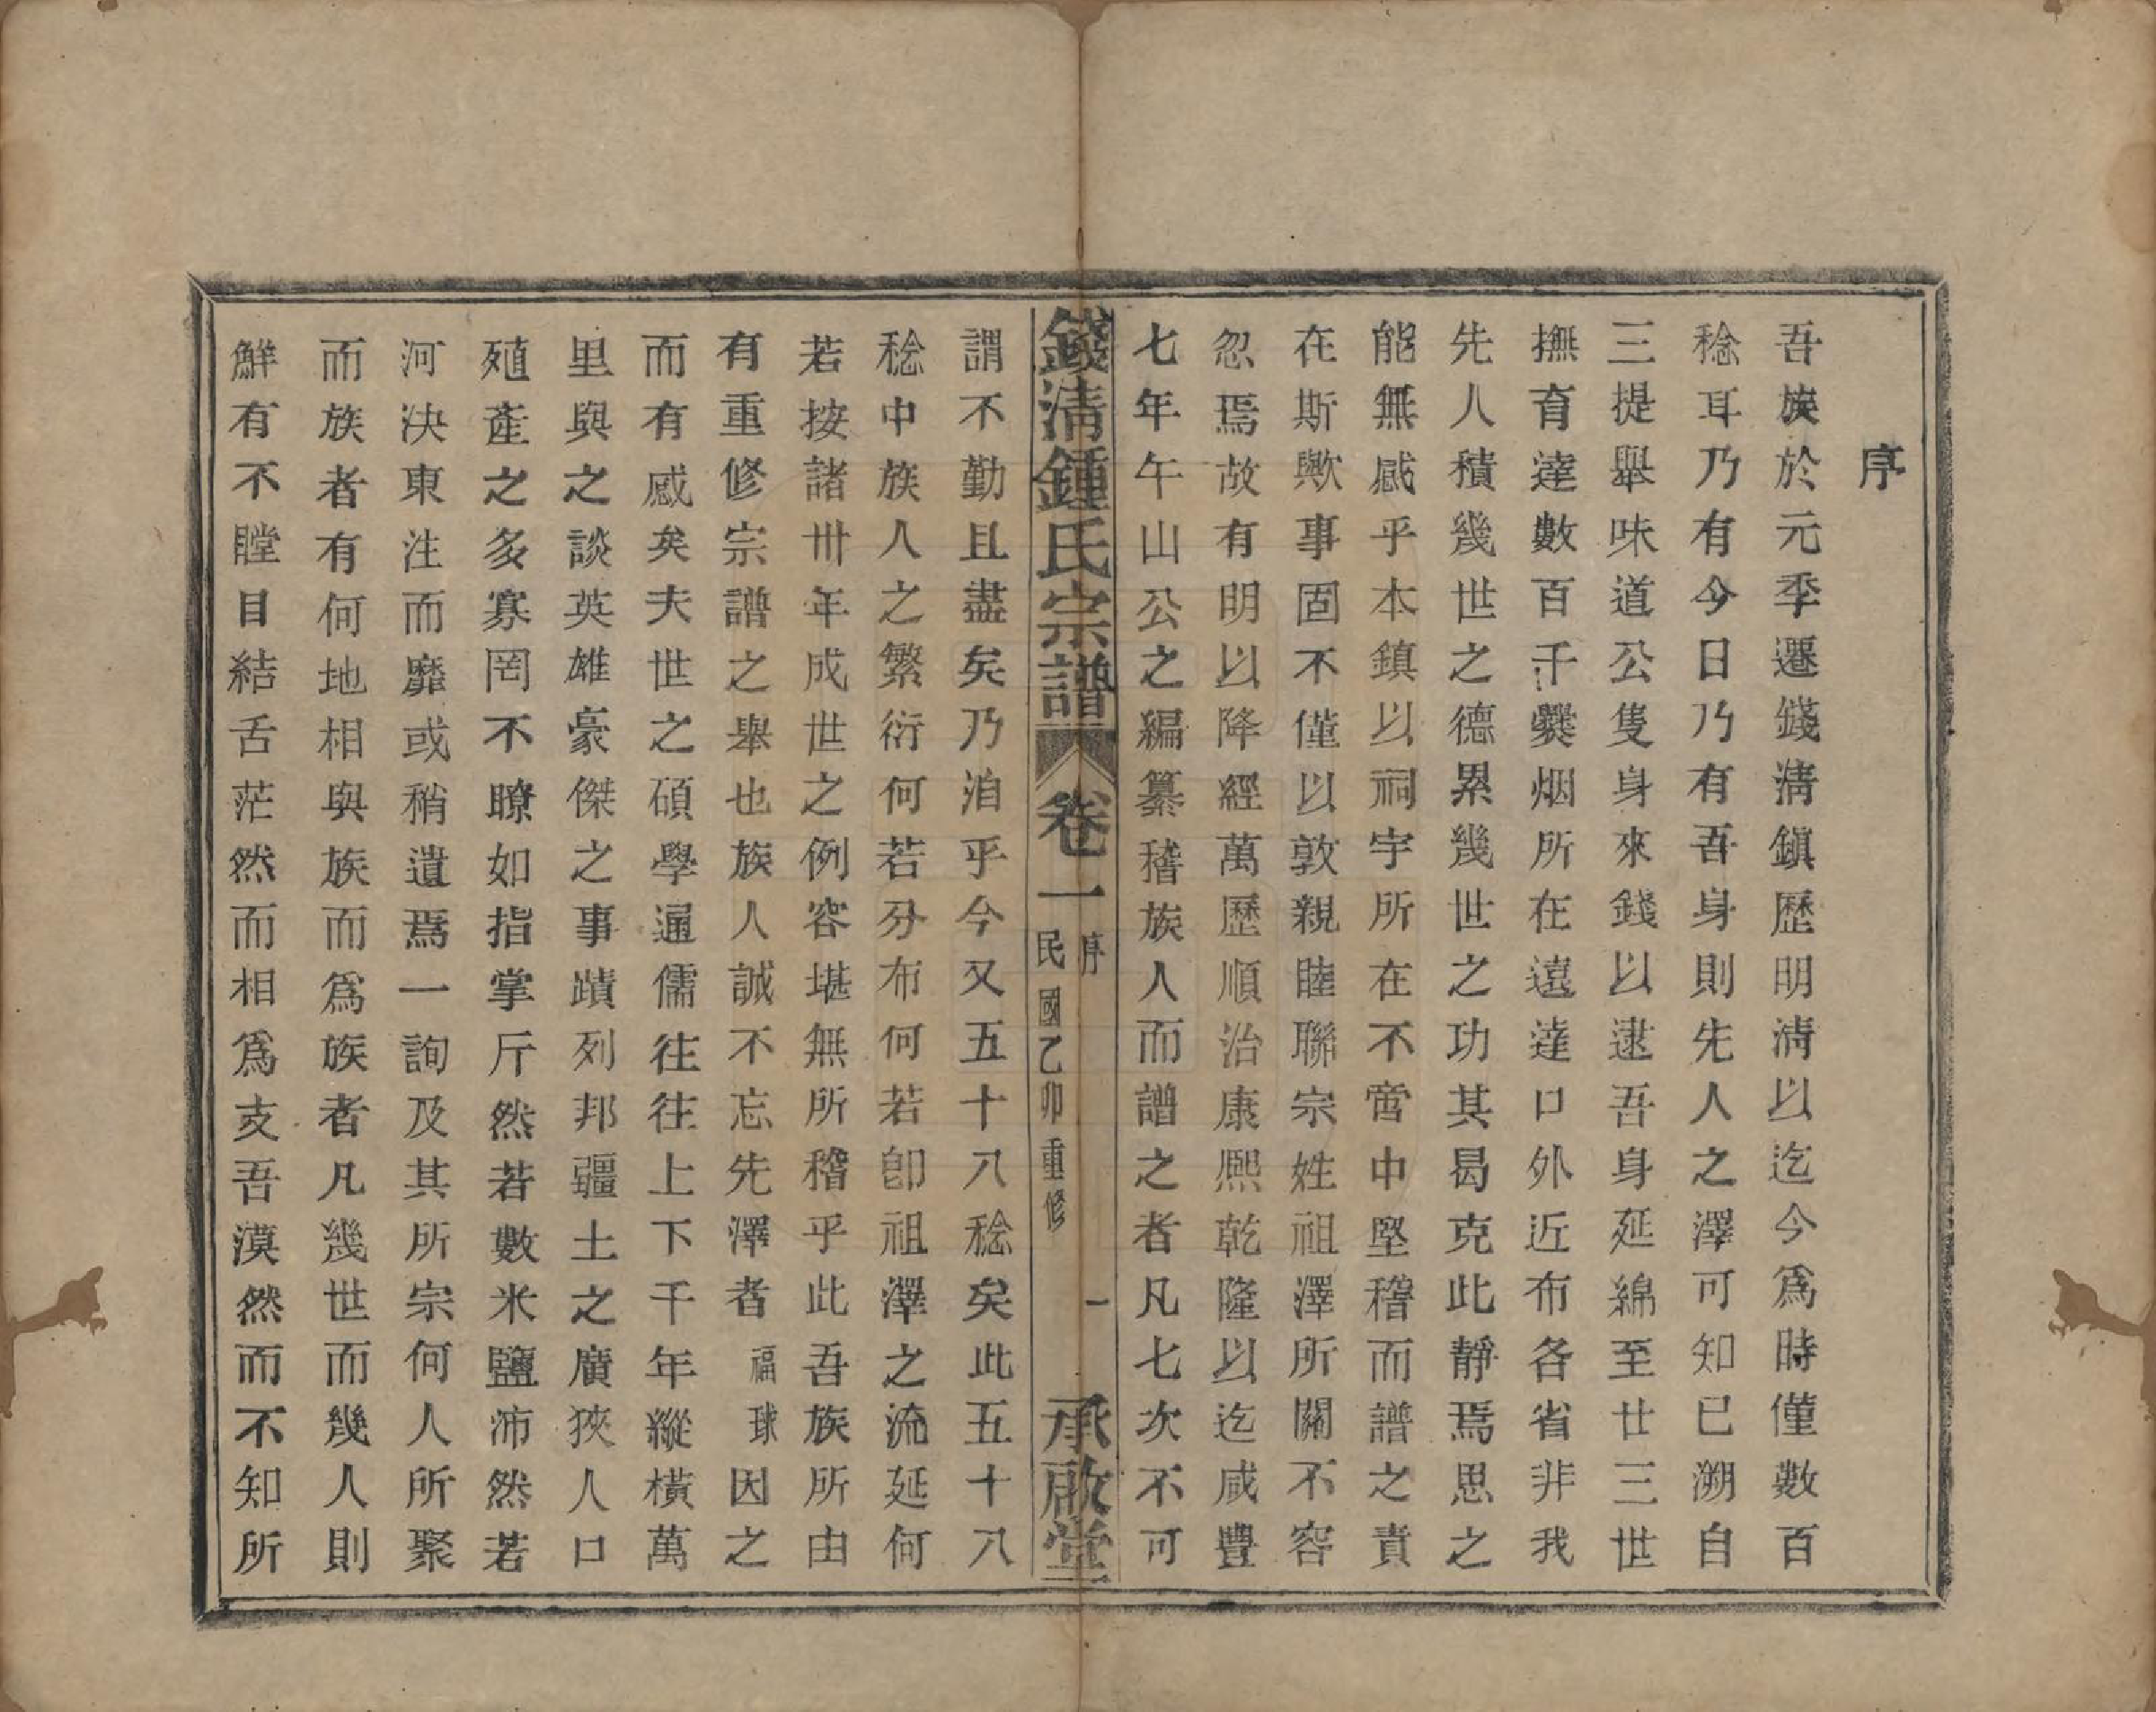 序
吾族於元季遷錢淸鎭歷明淸以迄今爲時僅數百
稔耳乃有今日乃有吾身則先人之澤可知已溯自
三提舉味道公隻身來錢以逮吾身延綿至廿三世
撫育達數百千爨烟所在遠達口外近布各省非我
先人積幾世之德累幾世之功其曷克此靜焉思之
能無感乎本鎮以祠宇所在不啻中堅稽而譜之責
在斯歟事固不僅以敦親睦聯宗姓祖澤所關不容
忽焉故有明以降經萬歷順治康熙乾隆以迄咸豐
七年午山公之編纂稽族人而譜之者凡七次不可
錢淸鍾氏宗譜 卷一 序 民國乙卯重修 一 承啟堂
謂不勤且盡矣乃洎乎今又五十八稔矣此五十八
稔中族人之繁衍何若分布何若卽祖澤之流延何
若按諸卅年成世之例容堪無所稽乎此吾族所由
有重修宗譜之舉也族人誠不忘先澤者福球因之
而有感矣夫世之碩學通儒往往上下千年縱橫萬
里與之談英雄豪傑之事蹟列邦疆土之廣狹人口
殖產之多寡罔不瞭如指掌斤然若數米鹽沛然若
河決東注而靡或稍遺焉一詢及其所宗何人所聚
而族者有何地相與族而爲族者凡幾世而幾人則
鮮有不瞠目結舌茫然而相爲支吾漠然而不知所